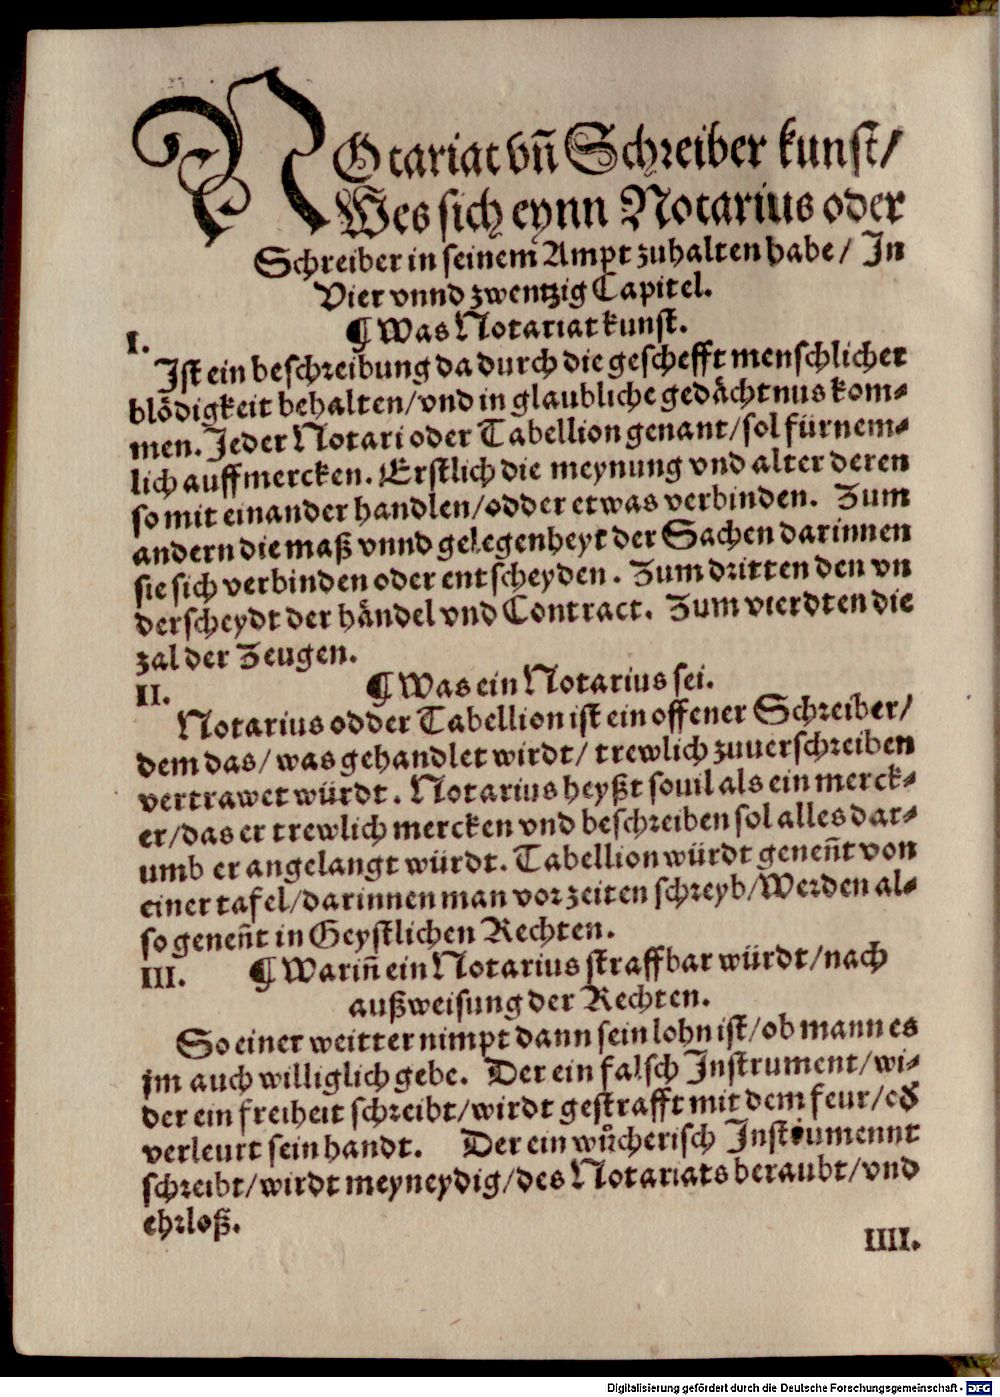 NOtariat vn̄ Schreiber kunst/
Wes sich eynn Notarius oder
Schreiber in seinem Ampt zuhalten habe/ In
Vier vnnd zwentzig Capitel.
I. ¶ Was Notariat kunst.
Ist ein beschreibung da durch die geschefft menschlicher
blödigkeit behalten/vnd in glaubliche gedächtnus kom-
men. Jeder Notari oder Tabellion genant/sol fürnem-
lich auffmercken. Erstlich die meynung vnd alter deren
so mit einander handlen/odder etwas verbinden. Zum
andern die maß vnnd gelegenheyt der Sachen darinnen
sie sich verbinden oder entscheyden. Zum dritten den vn
derscheydt der händel vnd Contract. Zum vierdten die
zal der Zeugen.
II. ¶ Was ein Notarius sei.
Notarius odder Tabellion ist ein offener Schreiber/
dem das/was gehandlet wirdt/ trewlich zuuerschreiben
vertrawet würdt. Notarius heyßt souil als ein merck-
er/das er trewlich mercken vnd beschreiben sol alles dar-
umb er angelangt würdt. Tabellion würdt geneñt von
einer tafel/darinnen man vor zeiten schreyb/Werden al-
so geneñt in Geystlichen Rechten.
III. ¶ Wariñ ein Notarius straffbar würdt/nach
außweisung der Rechten.
So einer weitter nimpt dann sein lohn ist/ob mann es
jm auch williglich gebe. Der ein falsch Instrument/wi-
der ein freiheit schreibt/wirdt gestrafft mit dem feur/oď
verleurt sein handt. Der ein wůcherisch Instrumennt
schreibt/wirdt meyneydig/des Notariats beraubt/vnd
ehrloß.
IIII.
Digitalisierung gefördert durch die Deutsche Forschungsgemeinschaft - DFG